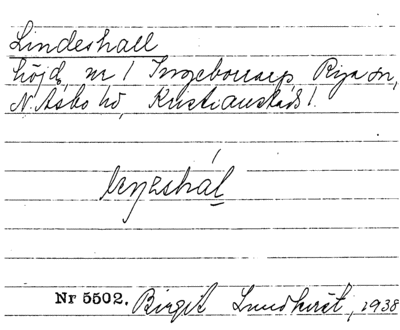 Lindeshall
höjd, nr 1 Ingeborrarp Rya sn,
N. Åsbo hd, Kristianstads l.
Nr 5502. Birgit Lundkvist, 1938